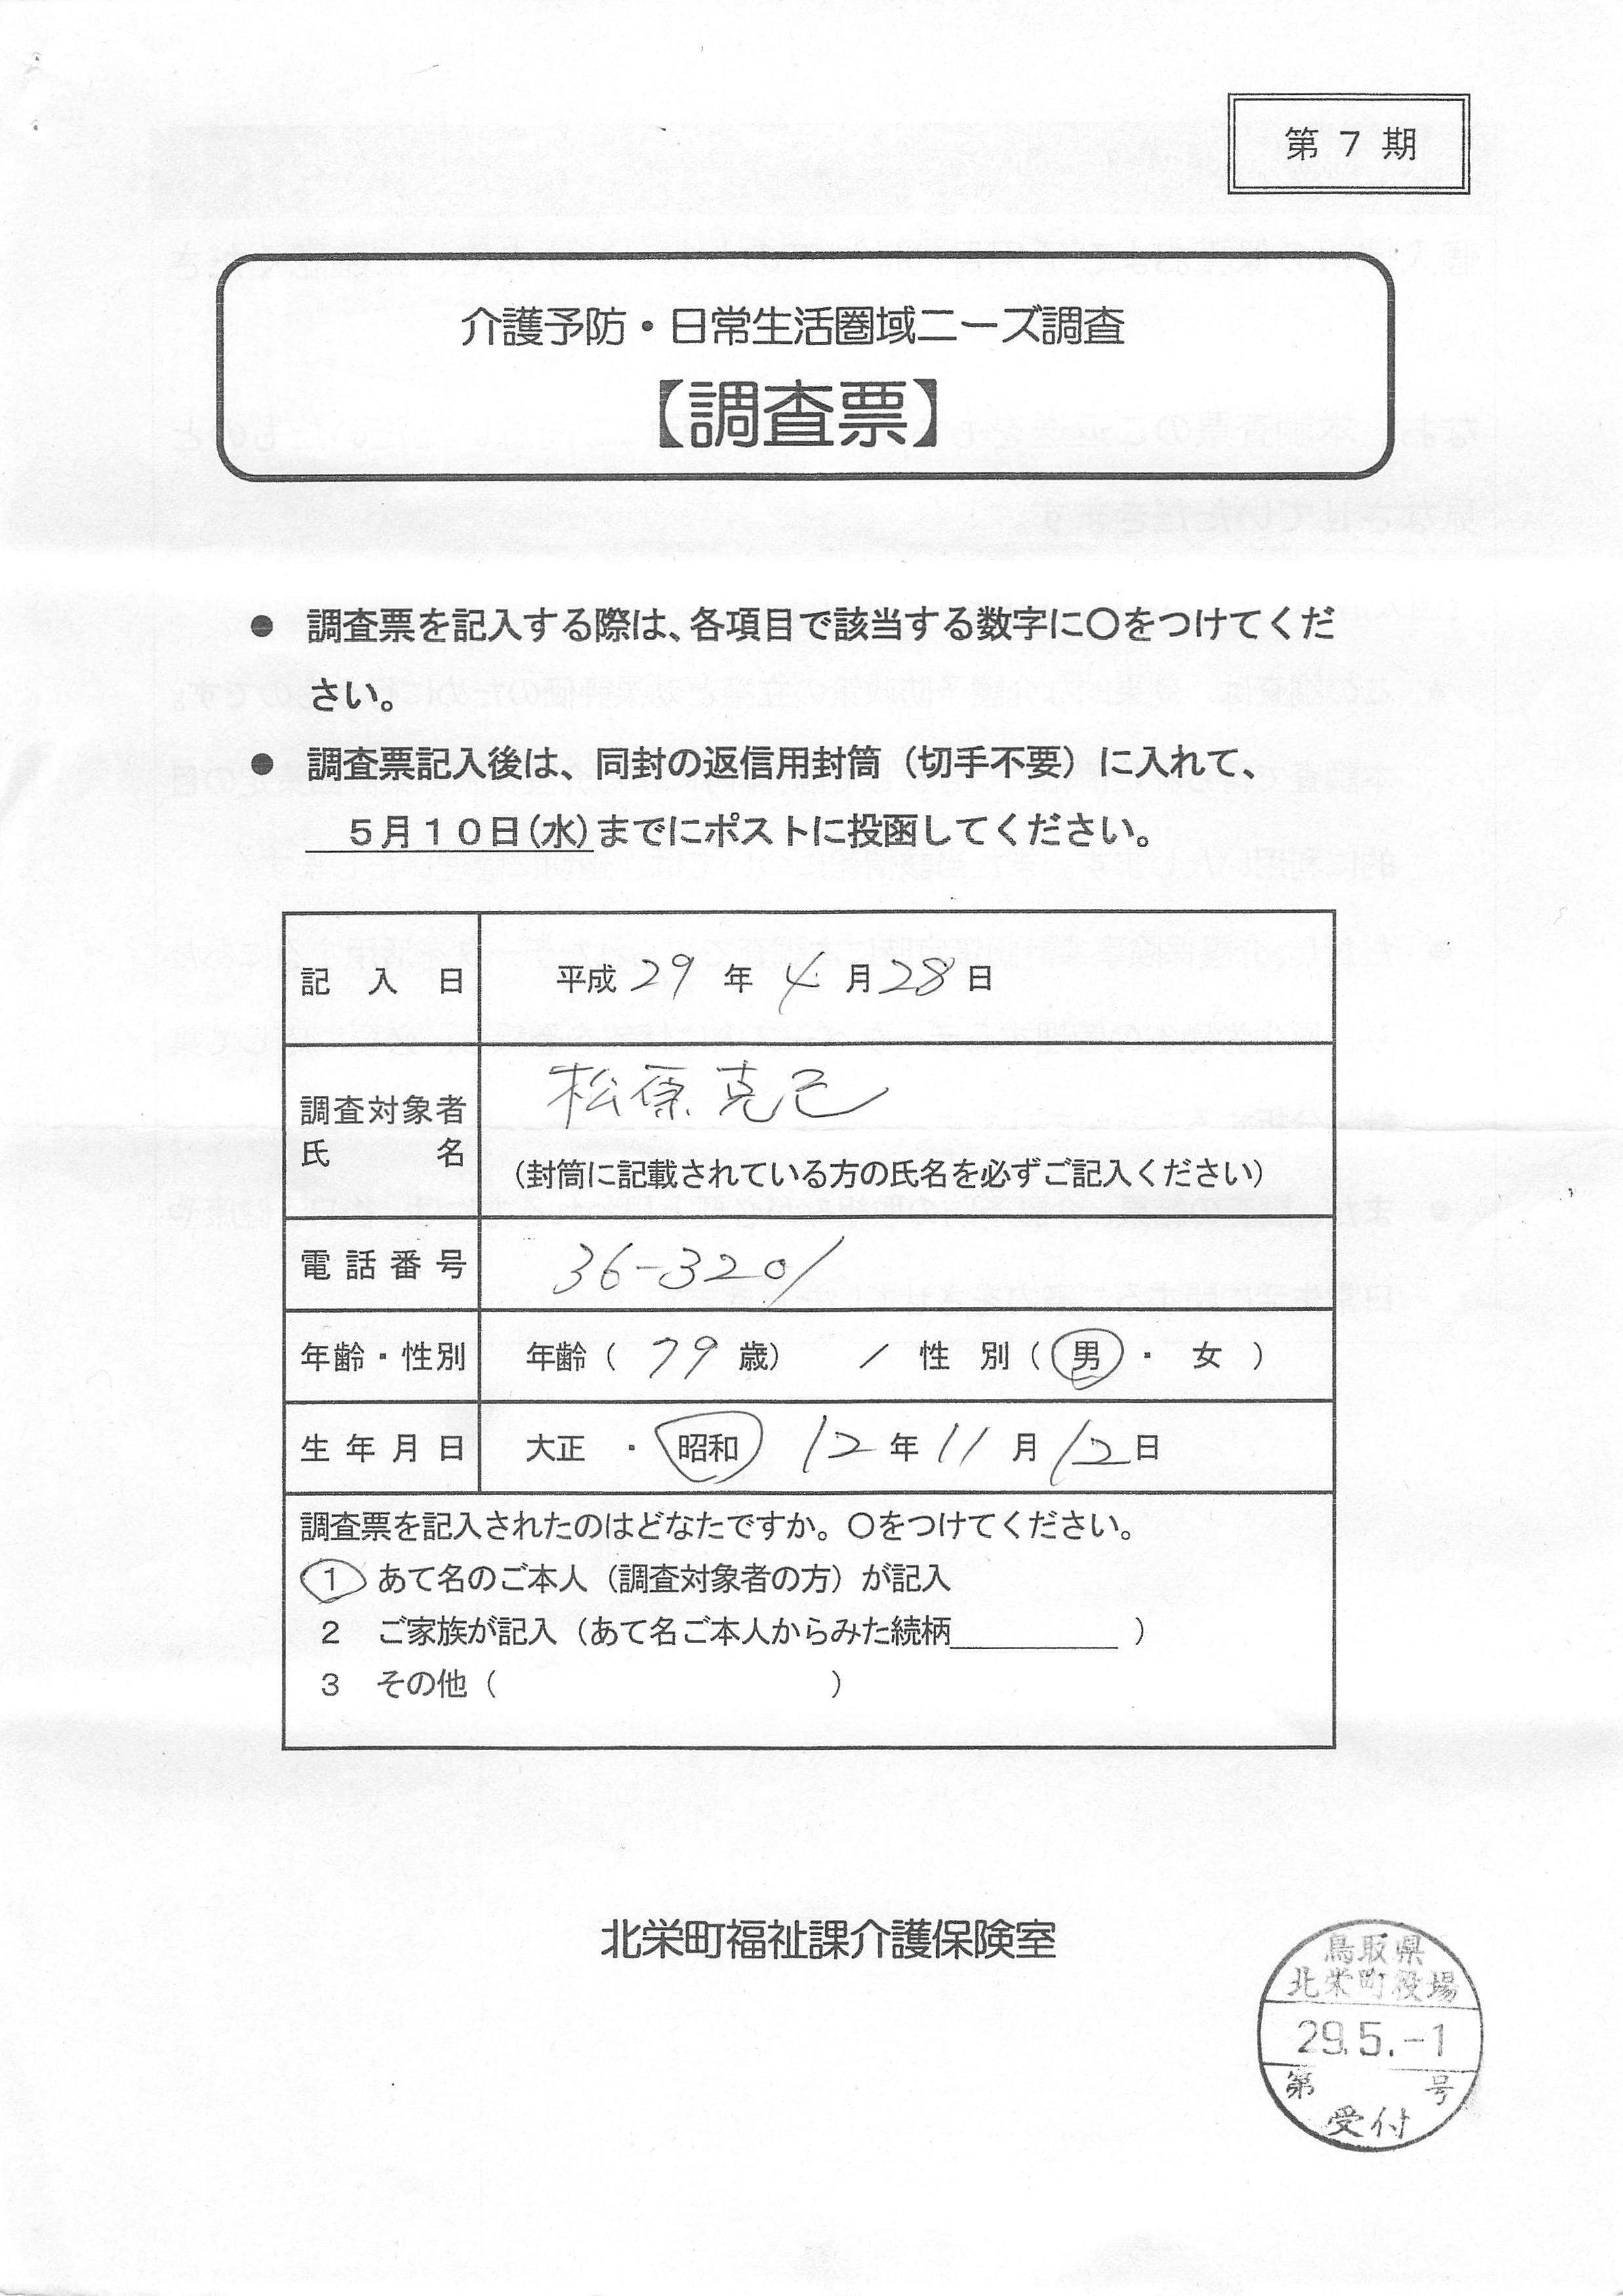 第 7 期
介護予防・日常生活圏域ニーズ調査
【調査票】
● 調査票を記入する際は、各項目で該当する数字に〇をつけてくだ
さい。
● 調査票記入後は、同封の返信用封筒（切手不要）に入れて、
５月１０日（水）までにポストに投函してください。
記入日 平成 29 年 4 月 28 日
調査対象者 松原克己
氏名 （封筒に記載されている方の氏名を必ずご記入ください）
電話番号 36-3201
年齢・性別 年齢（ 79 歳） / 性別（ 男 ・ 女 ）
生年月日 大正 ・ 昭和 12 年 11 月 12 日
調査票を記入されたのはどなたですか。〇をつけてください。
1 あて名のご本人（調査対象者の方）が記入
2 ご家族が記入（あて名ご本人からみた続柄 ）
3 その他（ ）
北栄町福祉課介護保険室
鳥取県
北栄町役場
29.5.-1
第 号
受付